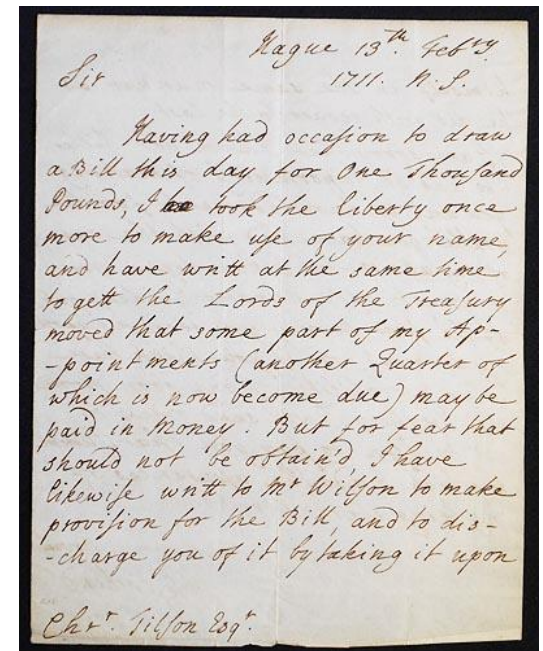 Hague 13th. Febry.
Sir 1711. N. S.
Having had occasion to draw
a Bill this day for One Thousand
Pounds, I took the liberty once
more to make use of your name,
and have writt at the same time
to gett the Lords of the Treasury
moved that some part of my Ap-
-pointments (another Quarter of
which is now become due) may be
paid in Money. But for fear that
should not be obtain'd, I have
likewise writt to Mr Wilson to make
provision for the Bill, and to dis-
-charge you of it by taking it upon
Chrr. Tilson Esqr.